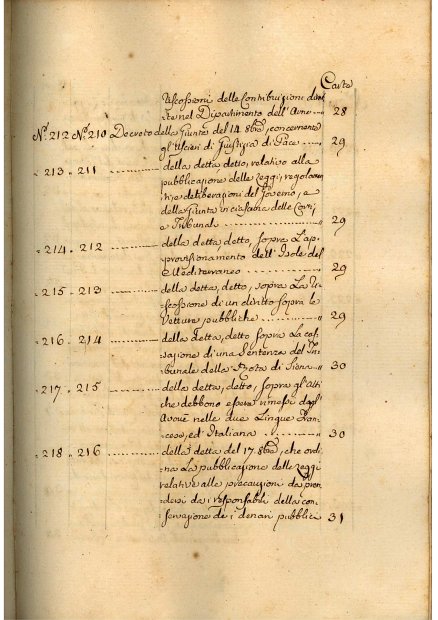 Carte
riscossioni delle Contribuzioni diret
te nel Dipartimento dell'Arno 28
N.º 212 N.º 210 Decreto della Giunta del 14. 8bre, concernente
gl'Uscieri di Giustizia di Pace 29
" 213 " 211 della detta, detto, relativo alla
pubblicazione delle Leggi, regolamen
ti, e deliberazioni del Governo, e
della Giunta in ciascuna delle Corti,
e Tribunali 29
" 214 " 212 della detta, detto, sopra l'ap
provisionamento dell'Isole del
Mediterraneo 29
" 215 " 213 della detta, detto, sopra la ri
scossione di un diritto sopra le
Vetture pubbliche 29
" 216 " 214 della detta, detto sopra la cas
sazione di una Sentenza del Tri
bunale della Rota di Siena 30
" 217 " 215 della detta, detto, sopra gl'Atti
che debbono essere rimessi dagl'
Avoué nelle due Lingue Fran
cese, ed Italiana 30
" 218 " 216 della detta del 17. 8bre, che ordi
na la pubblicazione delle Leggi
relative alle precauzioni da pren
dersi da i responsabili della con
servazione de i denari pubblici 31